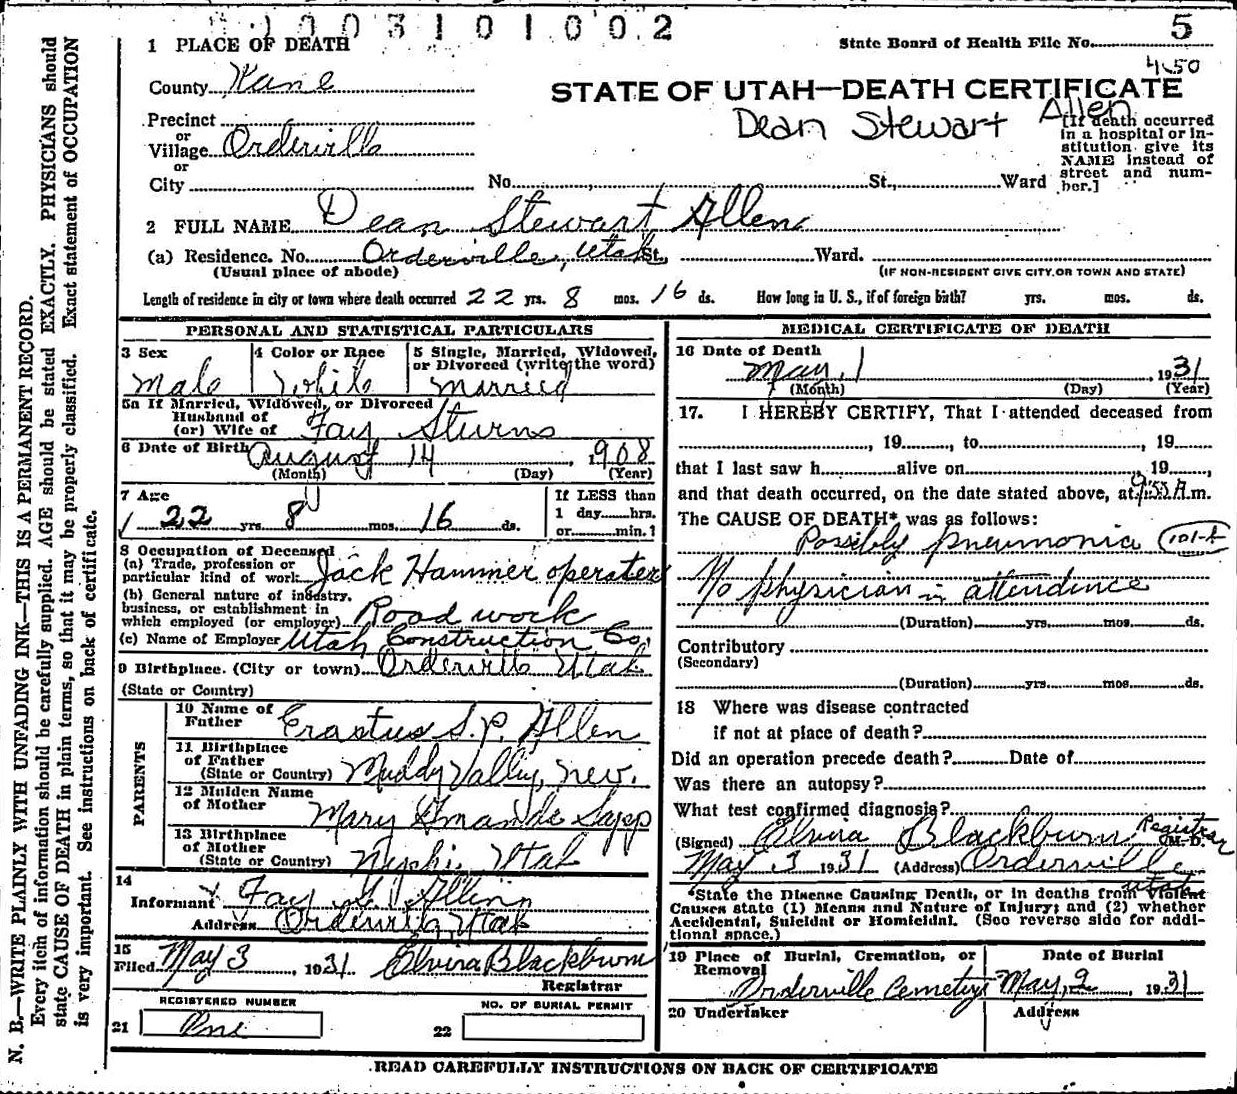 1003101002
5
1 PLACE OF DEATH
State Board of Health File No.
4.50
County Kane
STATE OF UTAH—DEATH CERTIFICATE
Dean Stewart Allen
[If death occurred in a hospital or in-stitution give its NAME instead of street and num-ber.]
Precinct
or
Village Orderville
or
City No. St., Ward
2 FULL NAME Dean Stewart Allen
(a) Residence. No. Orderville, Utah St, Ward.
(Usual place of abode) (IF NON-RESIDENT GIVE CITY OR TOWN AND STATE)
Length of residence in city or town where death occurred 22 yrs. 8 mos. 16 ds. How long in U. S., if of foreign birth? yrs. mos. ds.
PERSONAL AND STATISTICAL PARTICULARS
3 Sex
Male
4 Color or Race
White
5 Single, Married, Widowed, or Divorced (write the word)
Married
5a If Married, Widowed, or Divorced
Husband of
(or) Wife of Fay
6 Date of Birth August 14, 1908
(Month) (Day) (Year)
7 Age
22 yrs. 8 mos. 16 ds.
If LESS than
1 day hrs.
or min.?
8 Occupation of Deceased
(a) Trade, profession or
particular kind of work Jack Hammer operater
(b) General nature of industry,
business, or establishment in
which employed (or employer) Road work
(c) Name of Employer Utah Construction Co.
9 Birthplace. (City or town) Orderville Utah
(State or Country)
PARENTS
10 Name of
Father Erastus S.P. Allen
11 Birthplace
of Father
(State or Country) Muddy Valley, Nev.
12 Maiden Name
of Mother Mary Amanda
13 Birthplace
of Mother
(State or Country) Nephi, Utah
14
Informant Fay
Address Orderville Utah
15
Filed May 3, 1931 Elvira Blackburn
Registrar
REGISTERED NUMBER
21 One
NO. OF BURIAL PERMIT
22
MEDICAL CERTIFICATE OF DEATH
16 Date of Death
May 1, 1931
(Month) (Day) (Year)
17. I HEREBY CERTIFY, That I attended deceased from
, 19 , to , 19
that I last saw h alive on , 19 ,
and that death occurred, on the date stated above, at 9:55 A.m.
The CAUSE OF DEATH* was as follows:
Possibly pneumonia
No physician in attendence
(Duration) yrs. mos. ds.
Contributory
(Secondary)
(Duration) yrs. mos. ds.
18 Where was disease contracted
if not at place of death?
Did an operation precede death? Date of
Was there an autopsy?
What test confirmed diagnosis?
(Signed) Elvira Blackburn Registrar M.D.
May 3 1931 (Address) Orderville
Utah
*State the Disease Causing Death, or in deaths from Violent
Causes state (1) Means and Nature of Injury; and (2) whether
Accidental, Suicidal or Homicidal. (See reverse side for addi-
tional space.)
19 Place of Burial, Cremation, or
Removal
Orderville Cemetery
Date of Burial
May, 2, 1931
20 Undertaker
Address
READ CAREFULLY INSTRUCTIONS ON BACK OF CERTIFICATE
N. B.—WRITE PLAINLY WITH UNFADING INK—THIS IS A PERMANENT RECORD.
Every item of information should be carefully supplied. AGE should be stated EXACTLY. PHYSICIANS should
state CAUSE OF DEATH in plain terms, so that it may be properly classified. Exact statement of OCCUPATION
is very important. See instructions on back of certificate.